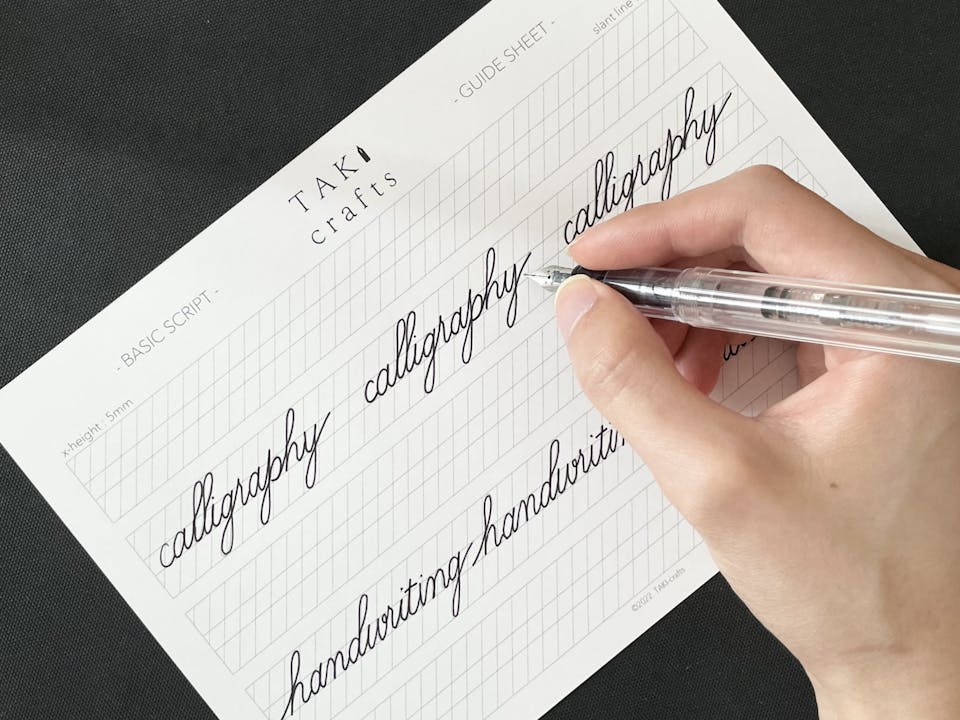 - BASIC SCRIPT -
TAKI
crafts
- GUIDE SHEET -
x-height : 5mm
slant line
calligraphy calligraphy calligraphy
handwriting
©2022 TAKI-crafts